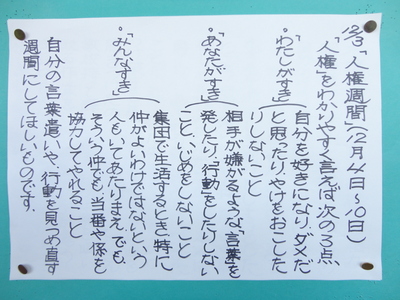 12/3「人権週間」(12月4日〜10日)
「人権」をわかりやすく言えば、次の3点、
・「わたしがすき」
自分を好きになり、ダメだ
と思ったり、やけをおこした
りしないこと
・「あなたがすき」
相手が嫌がるような「言葉」を
発したり、「行動」をしたりしない
こと、いじめをしないこと
・「みんなすき」
集団で生活するとき、特に
仲がよいわけではないという
人もいてあたりまえ。でも、
そういう仲でも、当番や係を
協力してやれること
自分の言葉遣いや、行動を見つめ直す
週間にしてほしいものです.